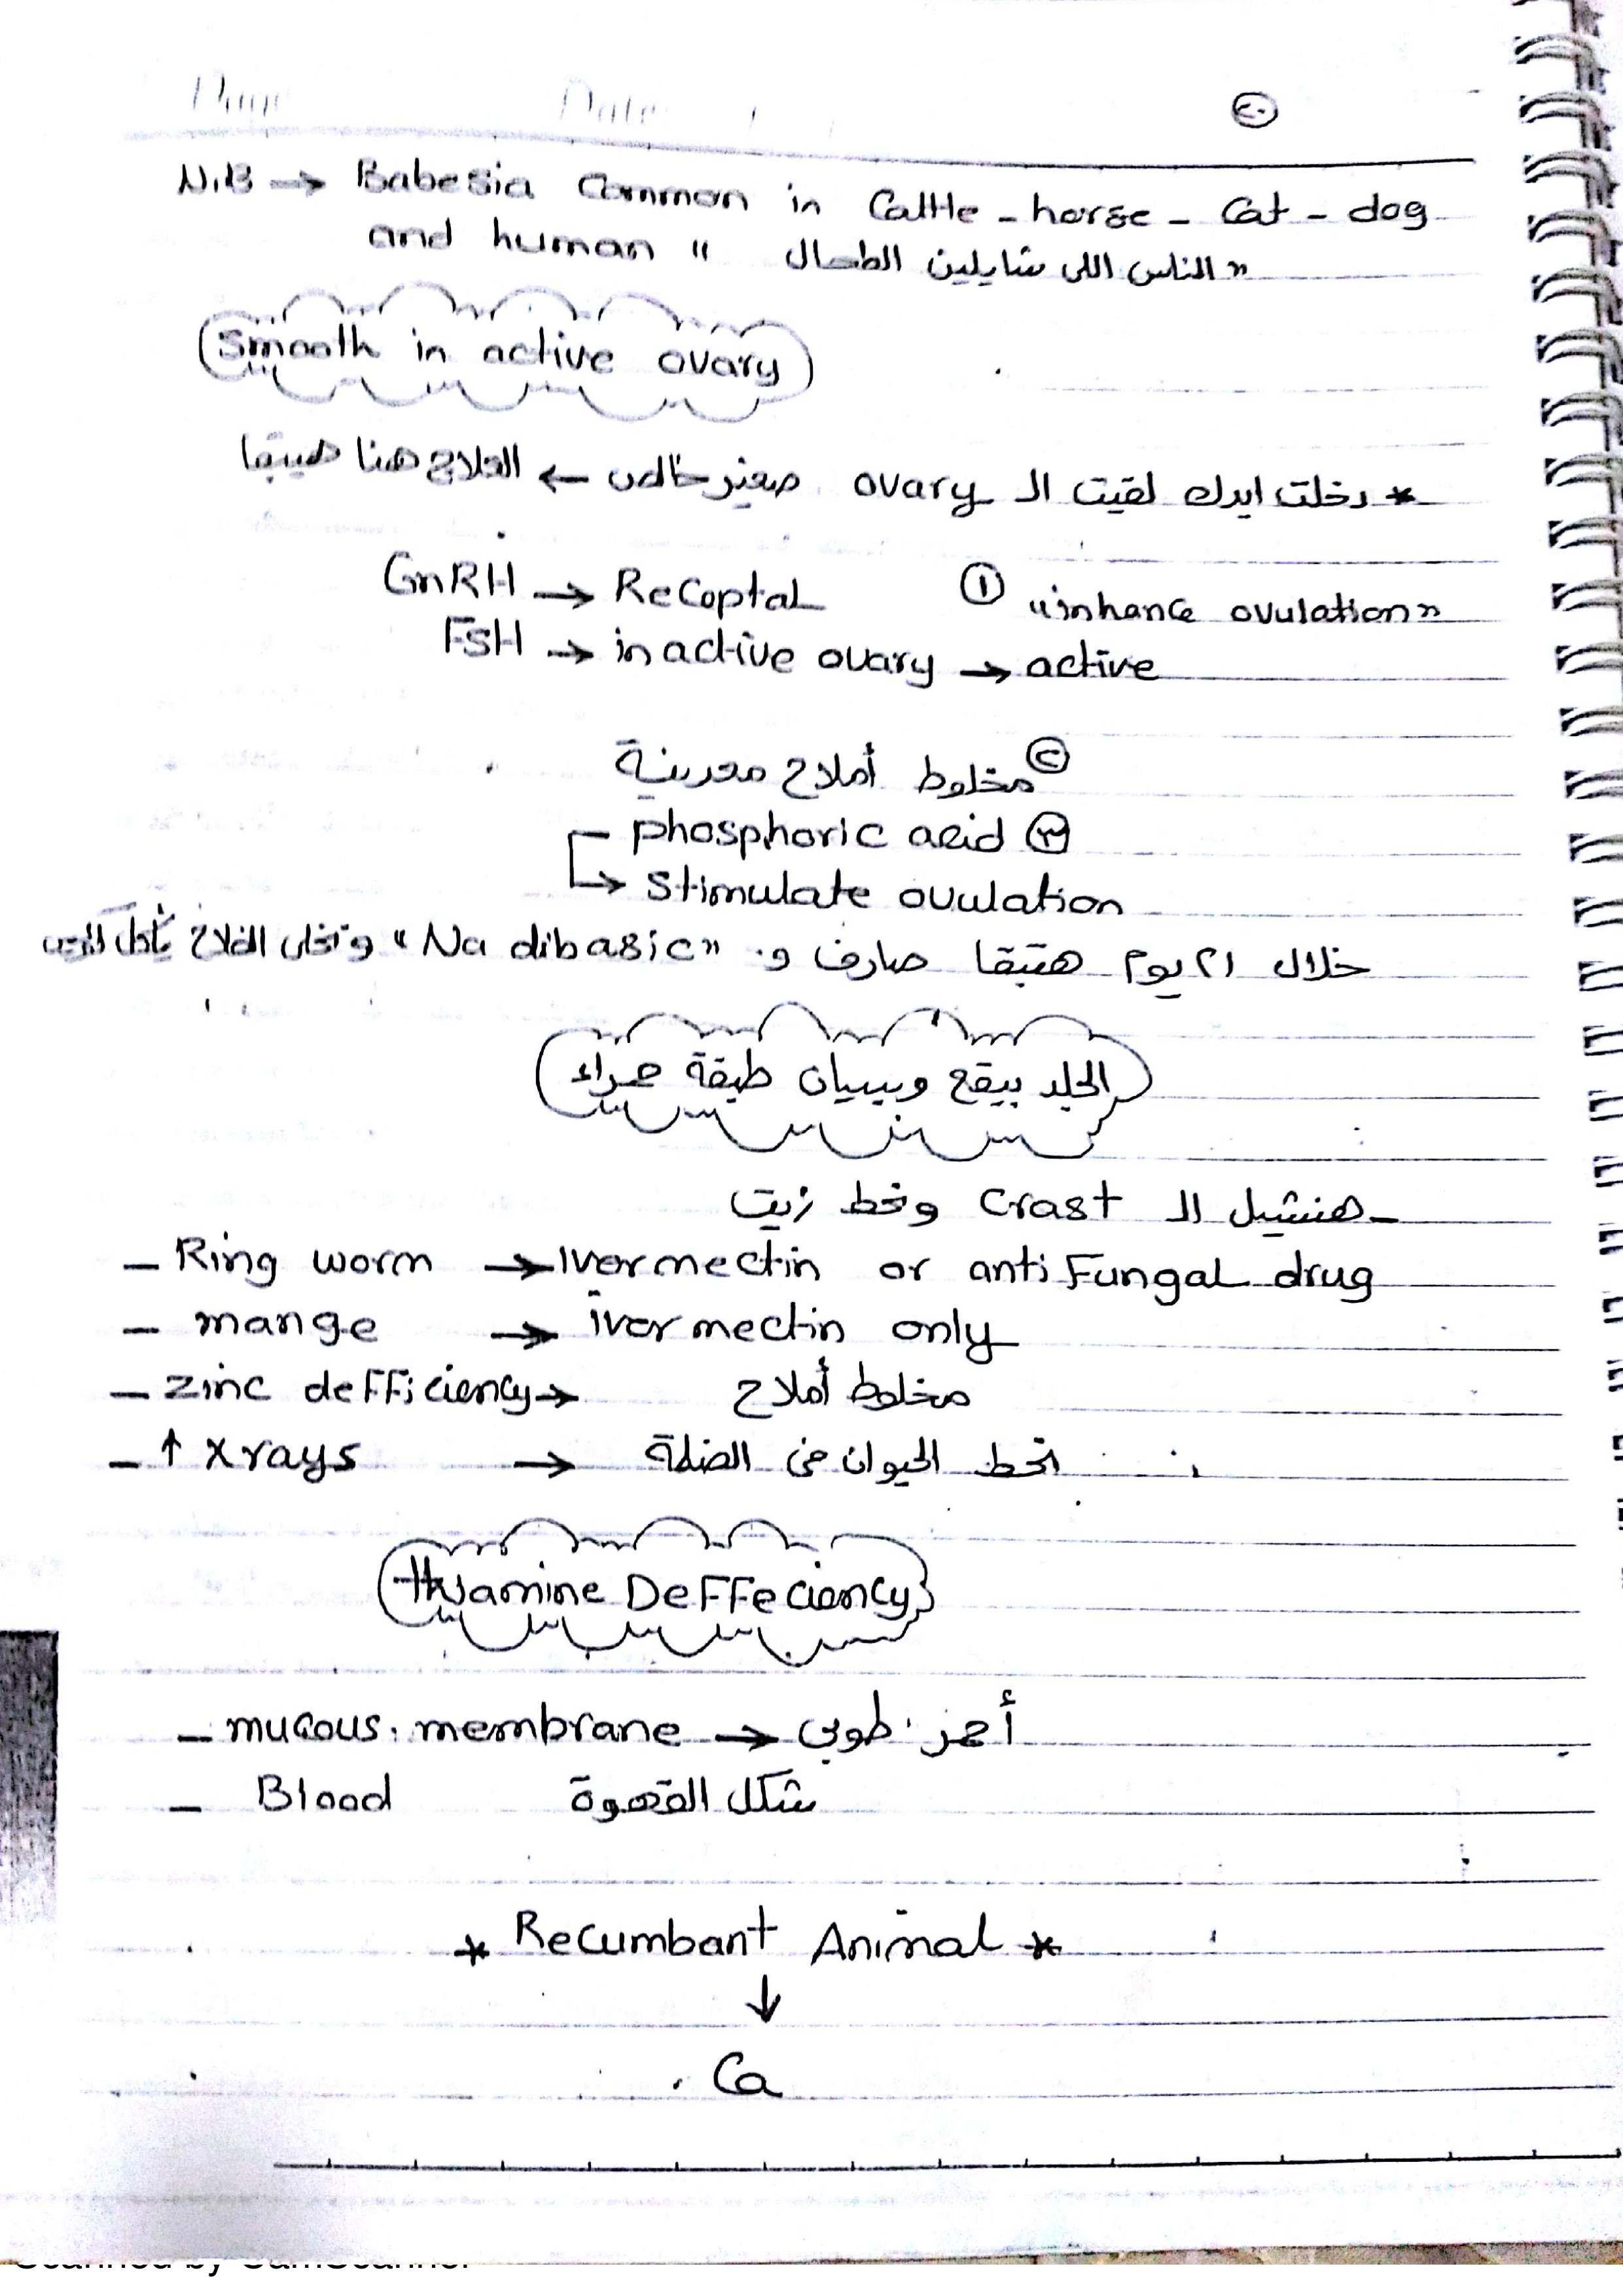 Page Date / /
٢٠
N.B → Babesia Common in Cattle - horse - Cat - dog
and human " الناس اللى شايلين الطحال "
Smooth in active ovary
* دخلت ايدك لقيت الـ ovary صغير خالص ← العلاج هنا هيبقا
GnRH → Receptal ① "inhance ovulation"
FSH → in active ovary → active
② مخلوط أملاح معدنية
phosphoric acid ③
→ stimulate ovulation
خلال ٢١ يوم هتبقا صارف و "Na dibasic" وتخلى الفلاح يأكل
الجلد بيقع وبيبان طبقة حمراء
- هنشيل الـ Crast ونحط زيت
- Ring worm → Ivermectin or anti Fungal drug
- mange → ivermectin only
- zinc defficiency → مخلوط أملاح
- ↑ X rays → نحط الحيوان فى الضلة
thyamine Deffeciency
- mucous. membrane → أحمر طوبى
- Blood شكل القهوة
* Recumbant Animal *
↓
Ca
Scanned by CamScanner